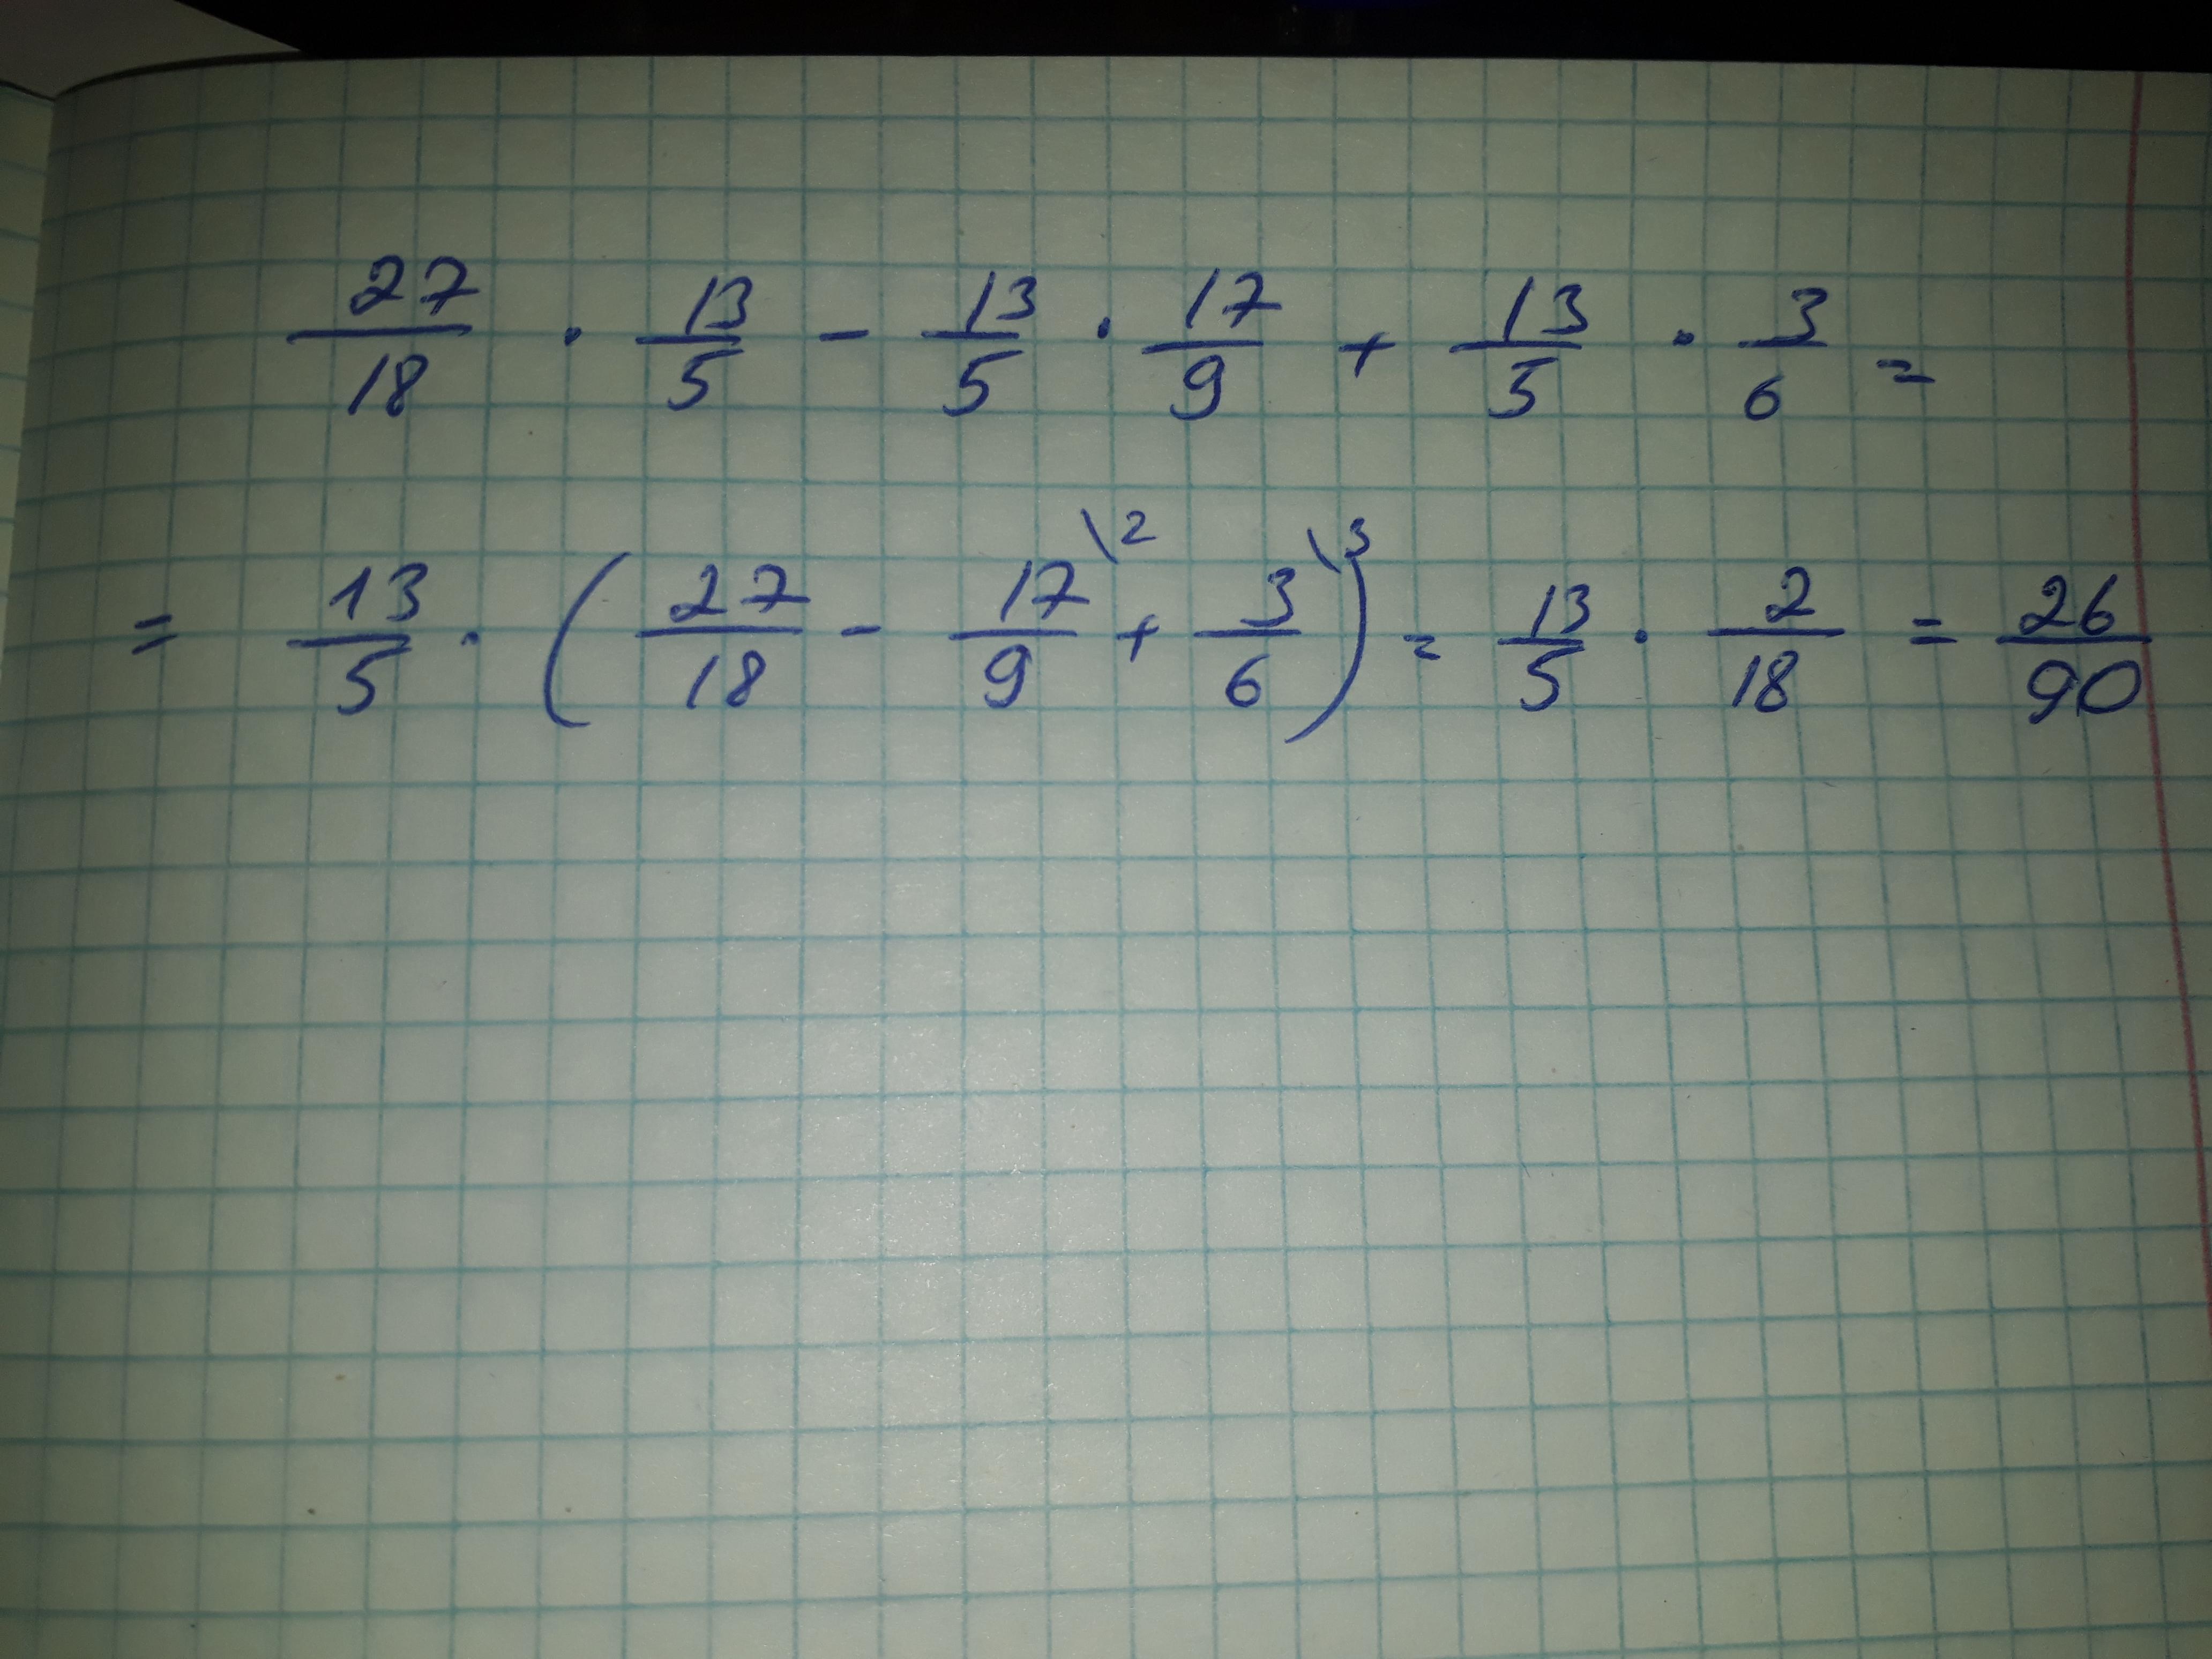 27/18 · 13/5 - 13/5 · 17/9 + 13/5 · 3/6 =
= 13/5 · (27/18 - 17/9 \2 + 3/6 \3) = 13/5 · 2/18 = 26/90